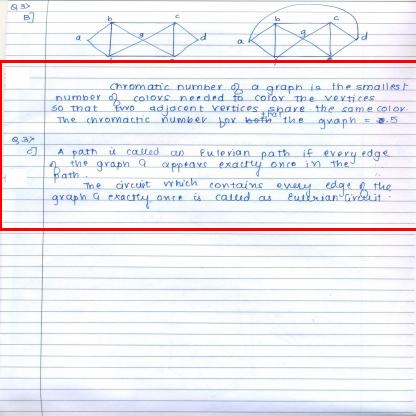 Q.3>
B]
b c b c
a g d a g d
Chromatic number of a graph is the smallest
number of colors needed to color the vertices
so that two adjacent vertices share the same color.
The chromactic number for that the graph = 5
Q.3>
c] A path is called an Eulerian path if every edge
of the graph G appears exactly once in the
path.
The circuit which contains every edge of the
graph G exactly once is called as Eulerian circuit.